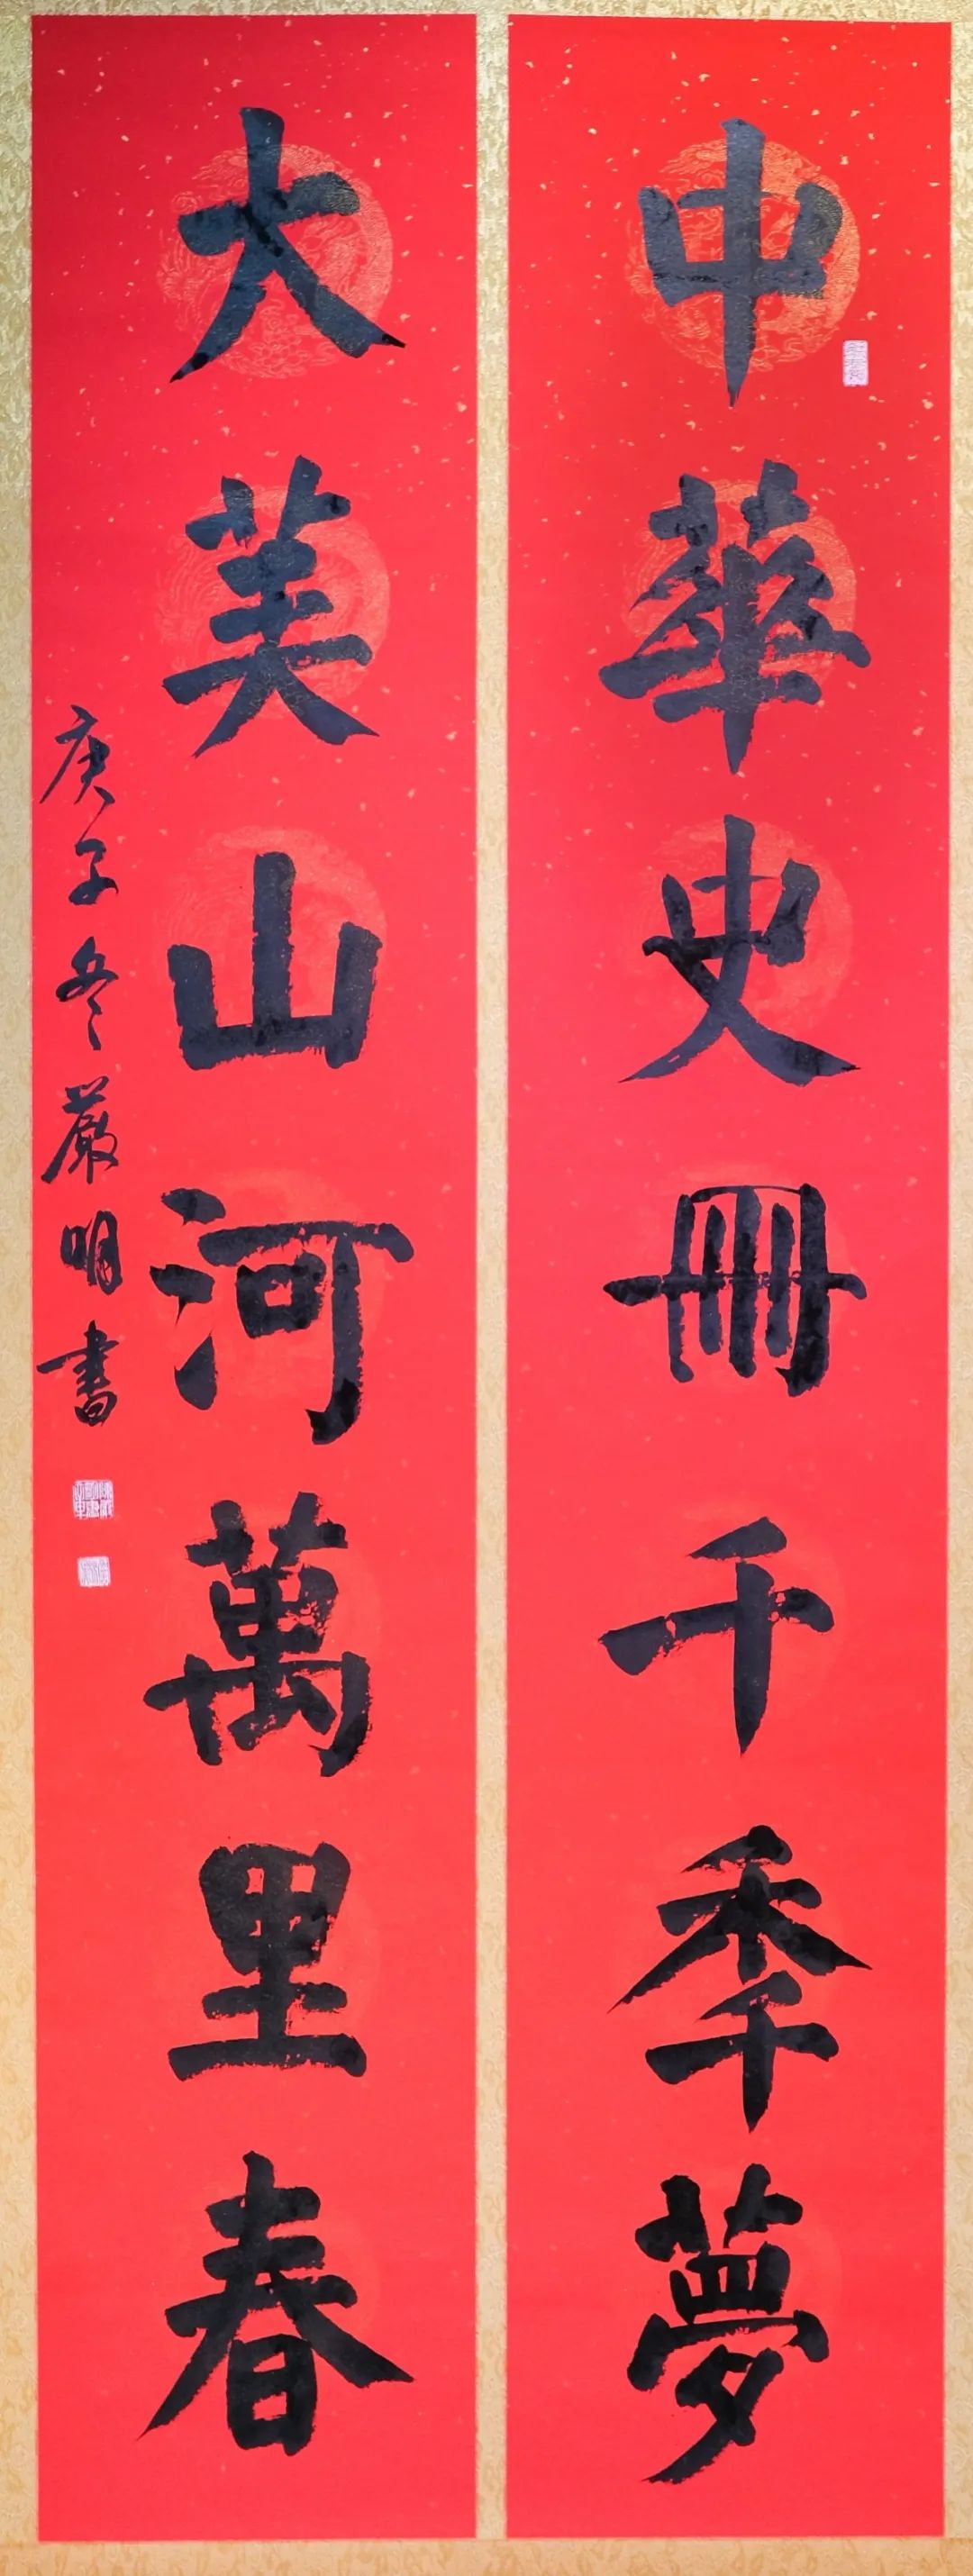 中華史冊千季夢
大美山河萬里春
庚子冬嚴明書